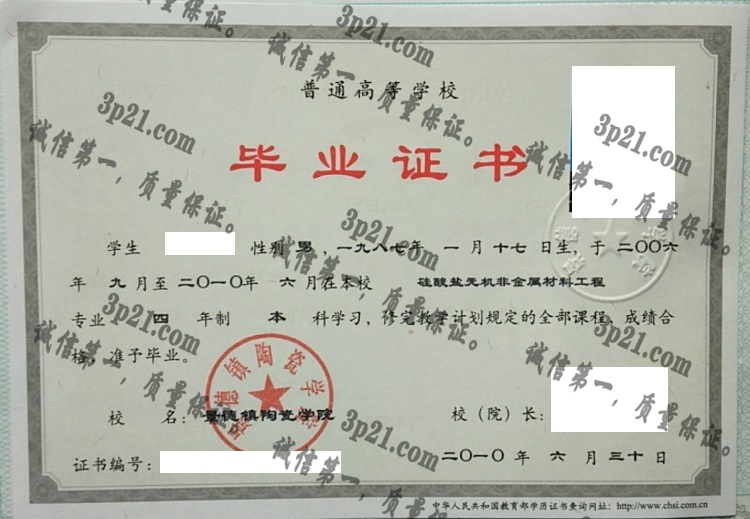 普通高等学校
毕业证书
学生 性别 男，一九八七年 一 月 十七 日生，于 二〇〇六
年 九 月至 二〇一〇年 六 月在本校 硅酸盐无机非金属材料工程
专业 四 年制 本 科学习，修完教学计划规定的全部课程，成绩合
格，准予毕业。
校 名：景德镇陶瓷学院
校（院）长：
证书编号：
二〇一〇 年 六 月 三十 日
中华人民共和国教育部学历证书查询网址：http://www.chsi.com.cn
景德镇陶瓷学院
3p21.com
诚信第一，质量保证。
3p21.com
诚信第一，质量保证。
3p21.com
诚信第一，质量保证。
3p21.com
诚信第一，质量保证。
3p21.com
诚信第一，质量保证。
3p21.com
诚信第一，质量保证。